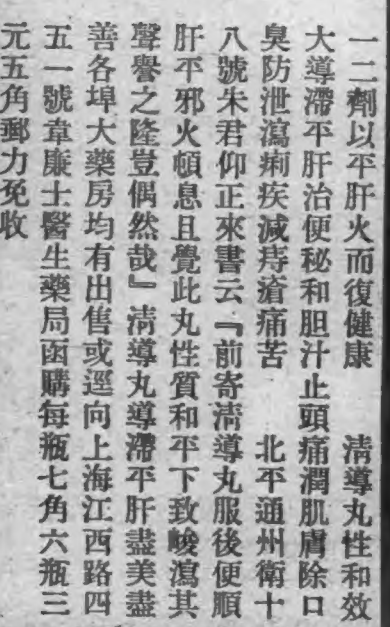 一二劑以平肝火而復健康　　清導丸性和效
大導滯平肝治便秘和胆汁止頭痛潤肌膚除口
臭防泄瀉痢疾減痔瘡痛苦　　北平通州衛十
八號朱君仰正來書云『前寄清導丸服後便順
肝平邪火頓息且覺此丸性質和平下致峻瀉其
聲譽之隆豈偶然哉』清導丸導滯平肝盡美盡
善各埠大藥房均有出售或逕向上海江西路四
五一號韋廉士醫生藥局函購每瓶七角六瓶三
元五角郵力免收